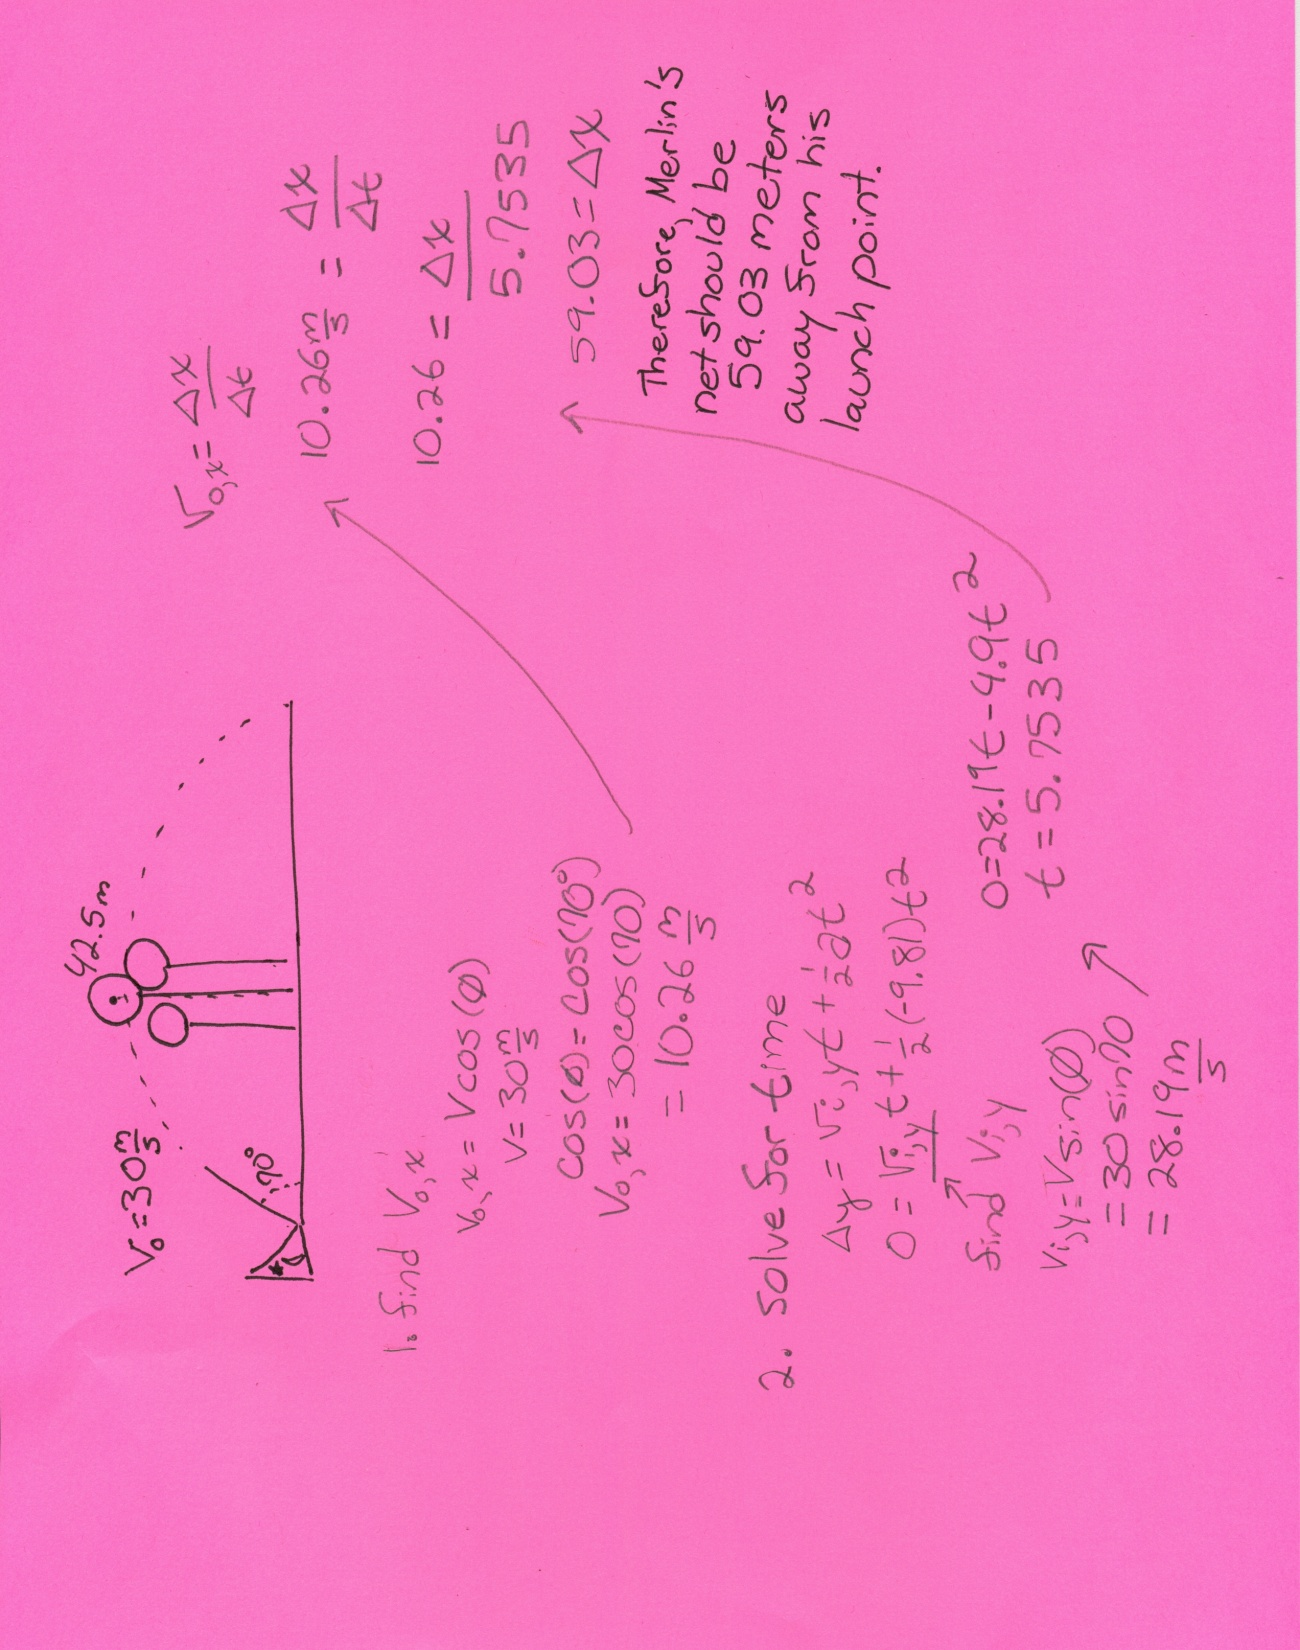 V₀ = 30 m/s
42.5 m
70°
1. find V₀,x
V₀,x = V cos(Ø)
V = 30 m/s
cos(Ø) = cos(70°)
V₀,x = 30 cos(70)
= 10.26 m/s
2. Solve for time
Δy = Vi,y t + 1/2 at²
0 = Vi,y t + 1/2 (-9.81)t²
find Vi,y
Vi,y = V sin(Ø)
= 30 sin 70
= 28.19 m/s
0 = 28.19t - 4.9t²
t = 5.7535
V₀,x = Δx/Δt
10.26 m/s = Δx/Δt
10.26 = Δx/5.7535
59.03 = Δx
Therefore, Merlin's
net should be
59.03 meters
away from his
launch point.